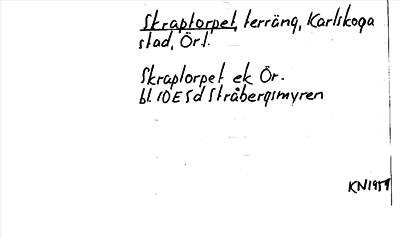 Skraptorpet, terräng, Karlskoga
stad, Ör.l.
Skraptorpet ek Ör.
bl. 10E5d Stråbergsmyren